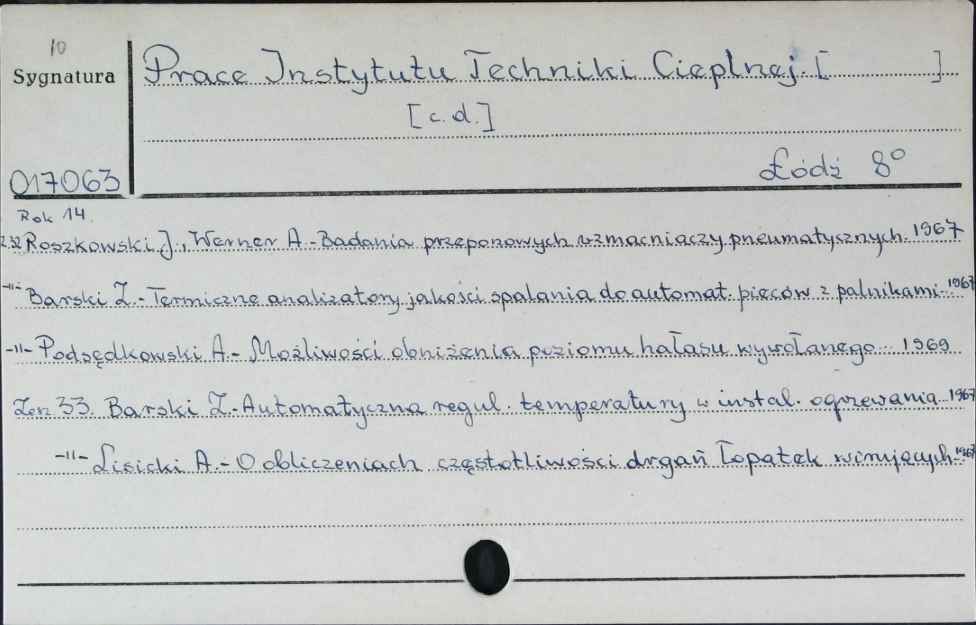 10
Sygnatura
Prace Instytutu Techniki Cieplnej. [ ]
[c.d.]
017063
Łódź 8°
Rok 14.
z.32 Roszkowski J., Werner A. - Badania przeponowych wzmacniaczy pneumatycznych. 1967
-"- Barski Z. - Termiczne analizatory jakości spalania do automat. pieców z palnikami. 1967
-"- Podsędkowski A. - Możliwości obniżenia poziomu hałasu wywołanego 1969
Zesz 33. Barski Z. - Automatyczna regul. temperatury w instal. ogrzewania 1967
-"- Lisicki A. - O obliczeniach częstotliwości drgań łopatek wirujących 1967